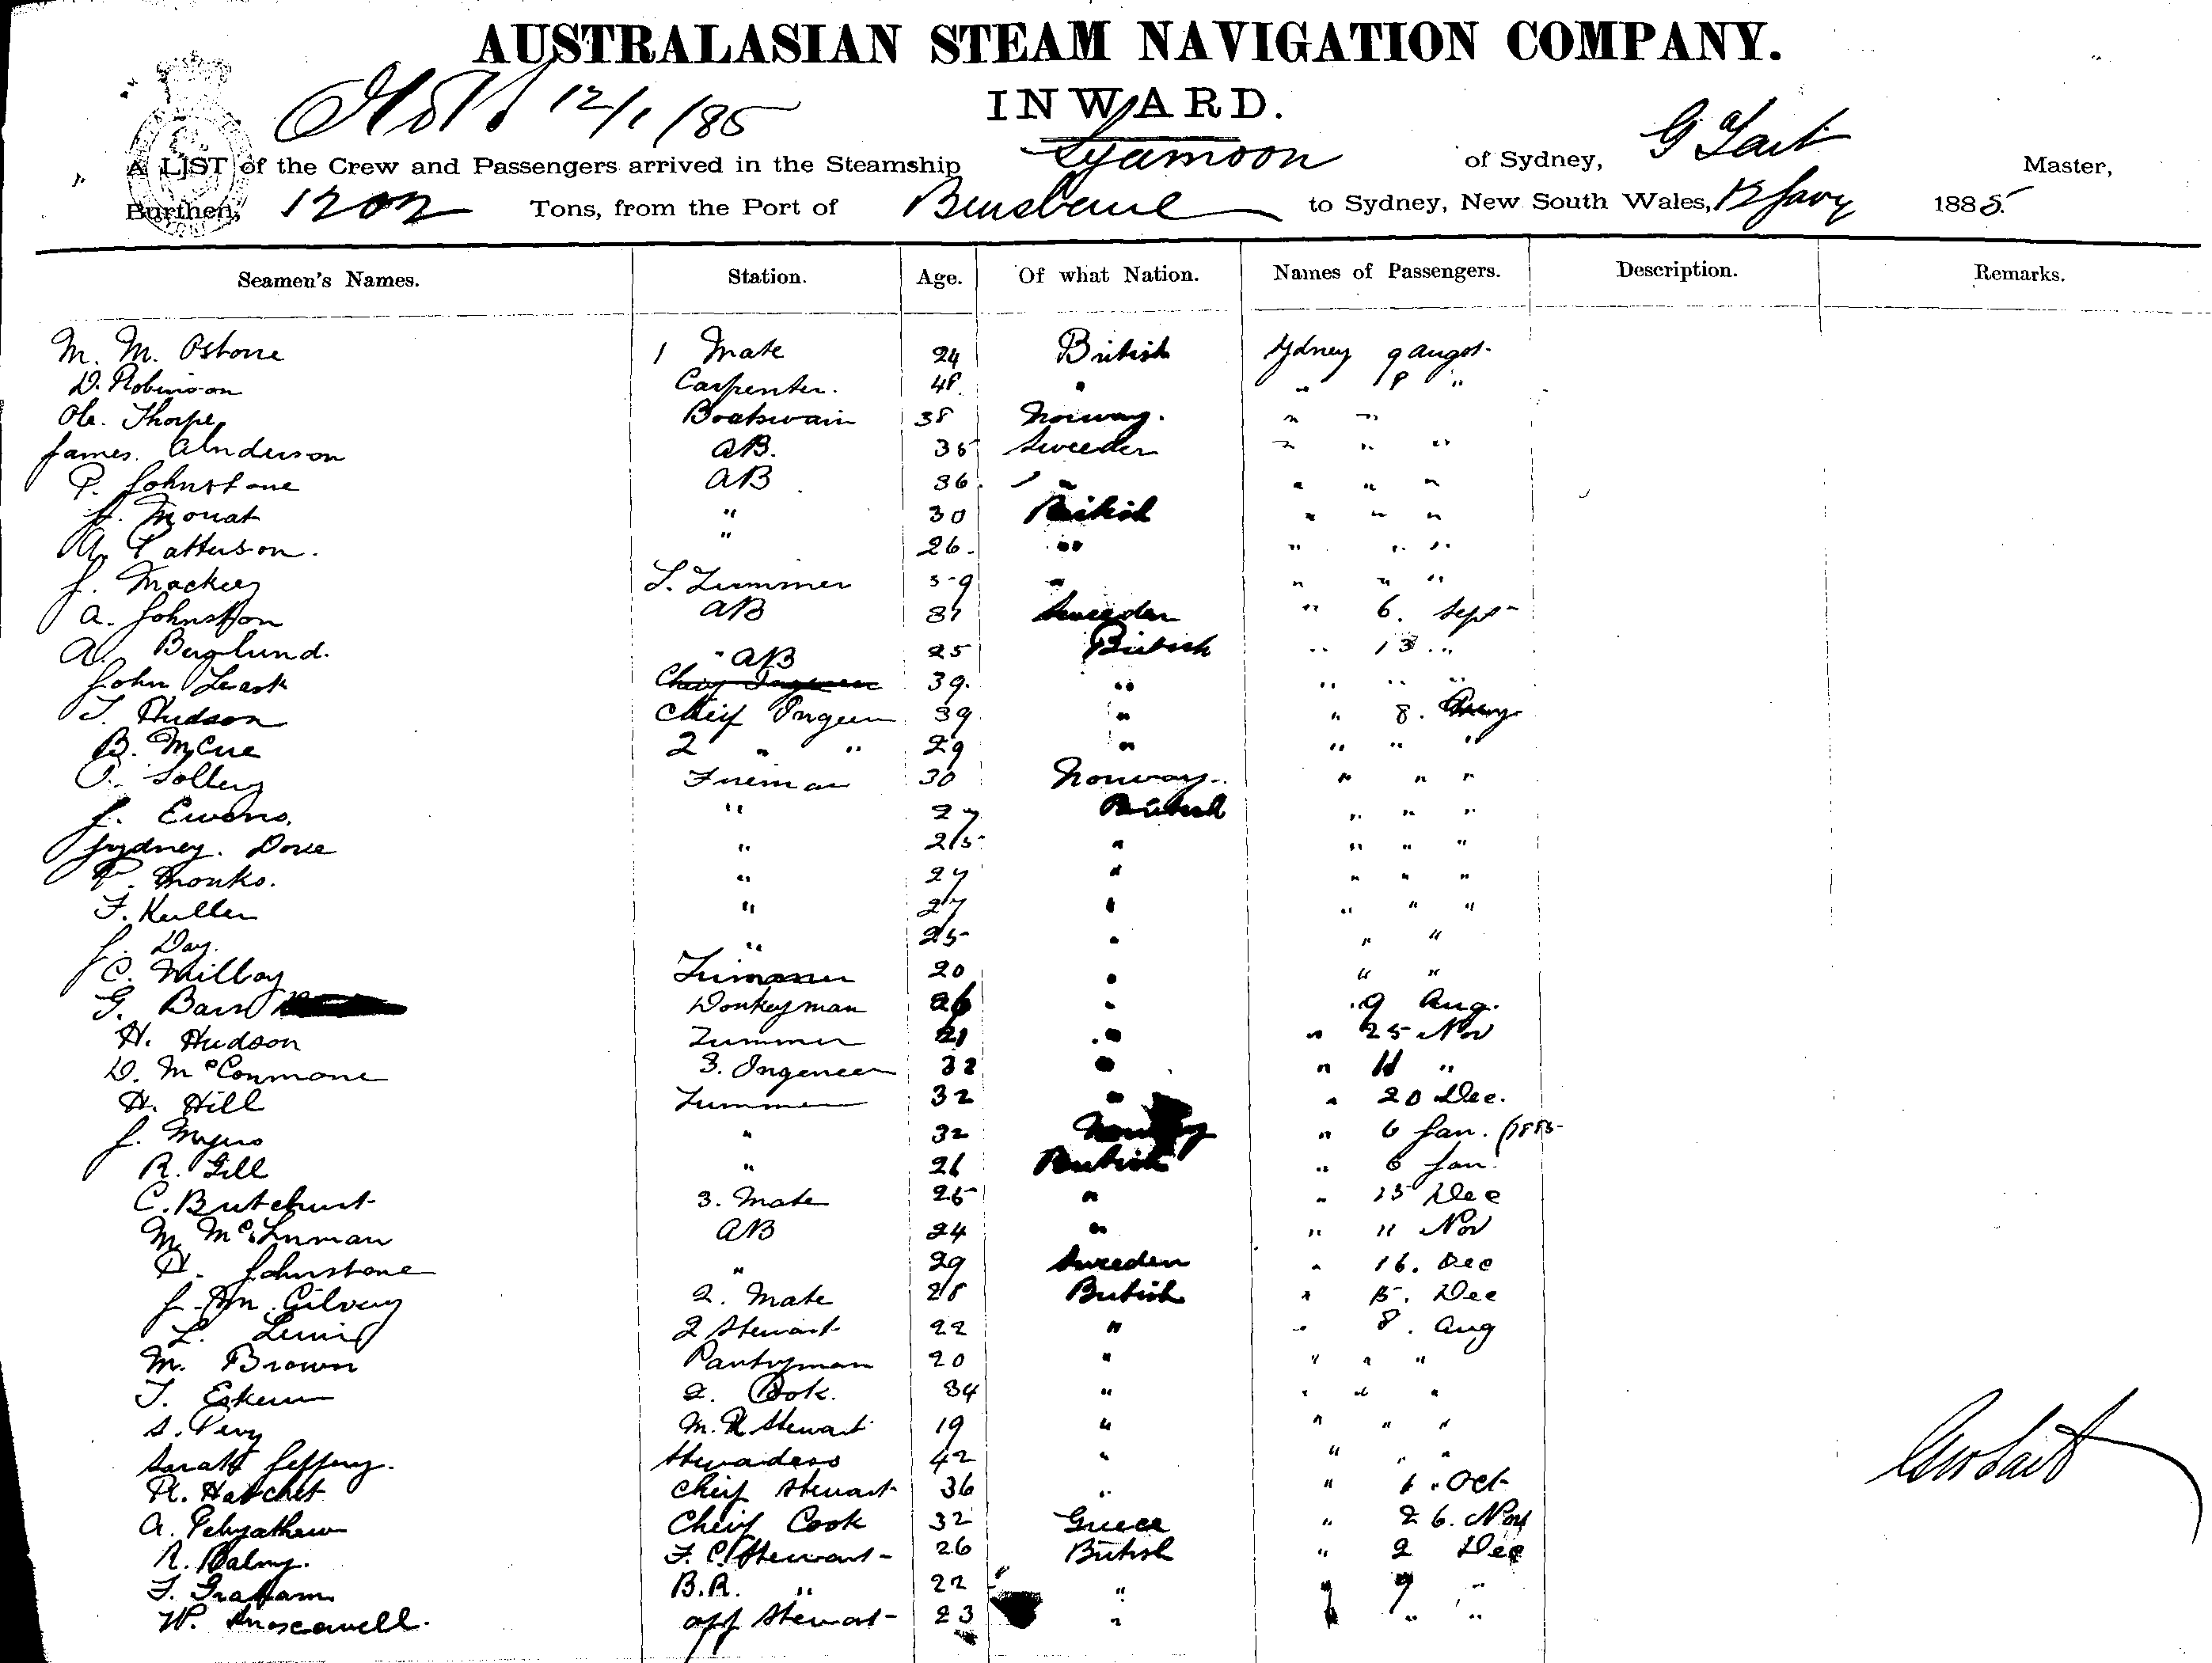 AUSTRALASIAN STEAM NAVIGATION COMPANY.
INWARD.
12/1/85
A LIST of the Crew and Passengers arrived in the Steamship Gyamoon of Sydney, G Lait Master,
Burthen, Tons, from the Port of Brisbane to Sydney, New South Wales, 12 Jany 1885.
Seamen's Names. Station. Age. Of what Nation. Names of Passengers. Description. Remarks.
M. M. Osborne 1 Mate 24 British Sydney 9 Augst.
D. Robinson Carpenter. 48 " " 8 "
Ole. Thorpe Boatswain 38 Norway. " "
James. Anderson AB. 35 Sweeden " " "
P. Johnstone AB 36. " " " "
J. Mouat " 30 British " " "
A. Patterson. " 26. " " " "
J. Mackey 59 " " " "
A. Johnston AB Sweeden " 6. Sept
A. Berglund. " AB 25 British " 13 "
John Leask 39. " " " "
T. Hudson Cheif Ingeen 39 " " 8.
B. McCue 2 " " 29 " " " "
O. Solberg Fireman 30 Norway. " " "
J. Ewens. " 27 British " " "
Sydney. Dove " 25 " " " "
P. Monks. " 27 " " " "
F. Kullen " 27 " " " "
J. Day. " 25 " " "
C. Milloy Trimmer 20 " " "
G. Barr Donkeyman 26 " 9 Aug.
H. Hudson Trimmer 21 " " 25 Nov
D. McConmone 3. Ingeneer 32 " " 11 "
H. Hill Trimmer 32 " " 20 Dec.
J. Myers " 32 Norway " 6 Jan. (1885
R. Gill " 21 British " 6 Jan.
C. Butchurt 3. Mate 25 " " 15 Dec
M. AB 24 " " 11 Nov
H. Johnstone " 29 Sweeden " 16. Dec
J. Gilvery 2. Mate 28 British " 15. Dec
L. Lewis 2 Stewart 22 " " 8. Aug
M. Brown Pantryman 20 " " " "
T. 2. Cook. 34 " " " "
S. Pery M. R Stewart 19 " " " "
Sarah Jeffery. Stewadess 42 " " " "
R. Hatchet Cheif Stewart 36 " " 1. Oct
A. Cheif Cook 32 Greece " 26. Nov
R. F. C. Stewart 26 British " 2 Dec
F. Graham B.R. " 22 " " 9 "
W. off Stewart 23 " " " "
Geo Lait